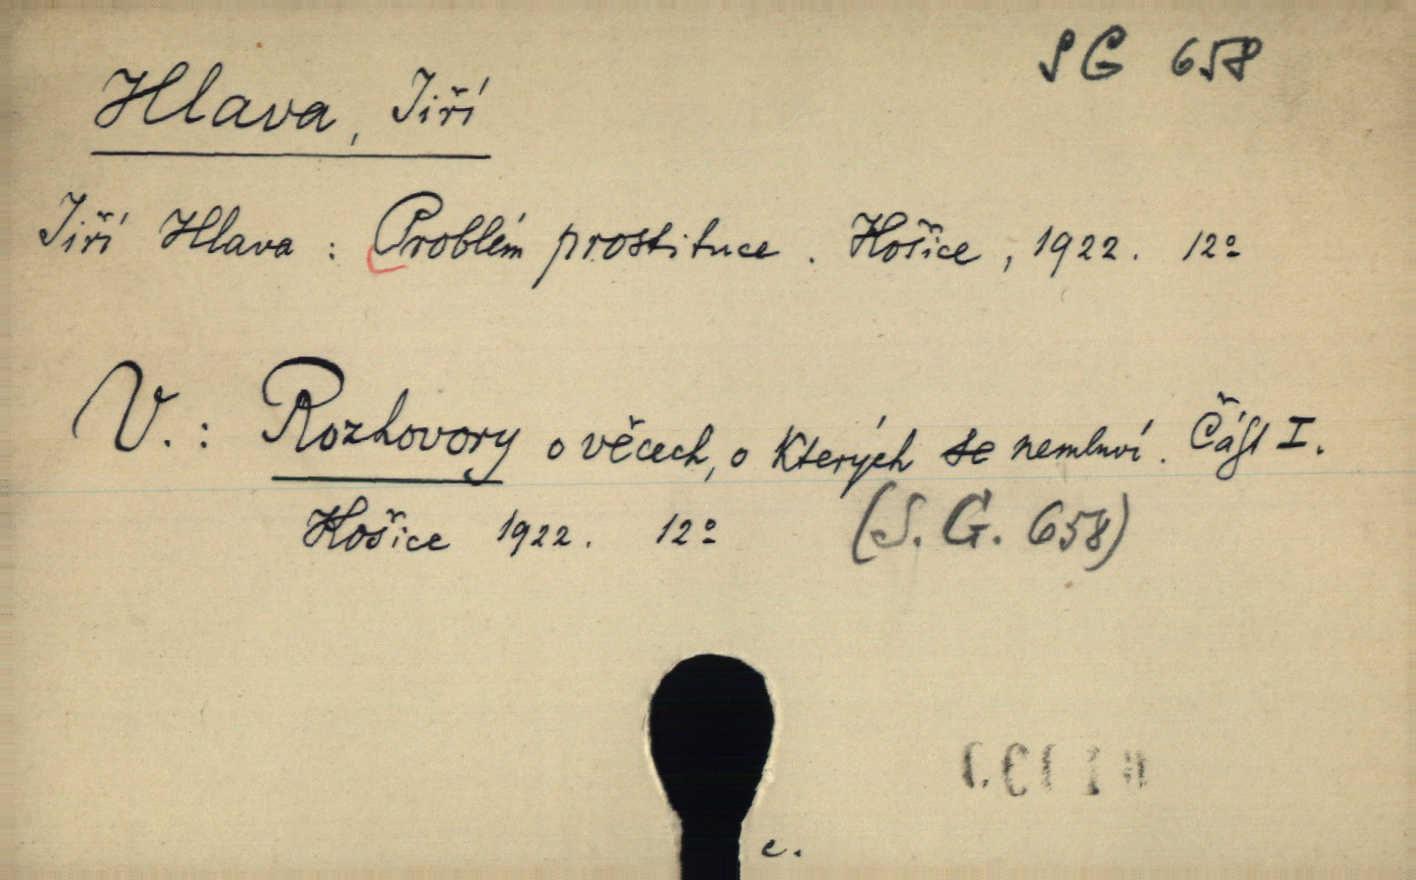 SG 658
Hlava, Jiří
Jiří Hlava : Problém prostituce. Košice, 1922. 12°
V. : Rozhovory o věcech, o kterých se nemluví. Část I.
Košice 1922. 12° (S. G. 658)
c.